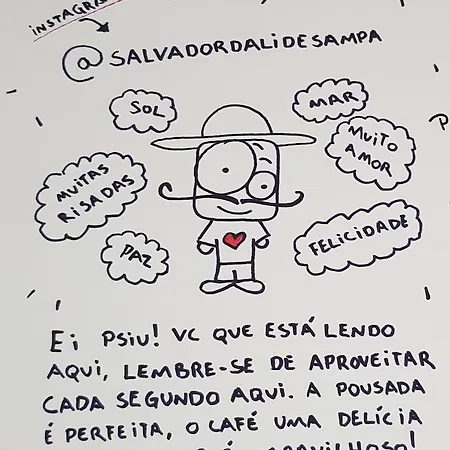 INSTAGRAM
@SALVADORDALIDESAMPA
SOL
MAR
MUITO
AMOR
MUITAS
RISADAS
PAZ
FELICIDADE
Ei PSIU! VC QUE ESTÁ LENDO
AQUI, LEMBRE-SE DE APROVEITAR
CADA SEGUNDO AQUI. A POUSADA
É PERFEITA, O CAFÉ UMA DELÍCIA